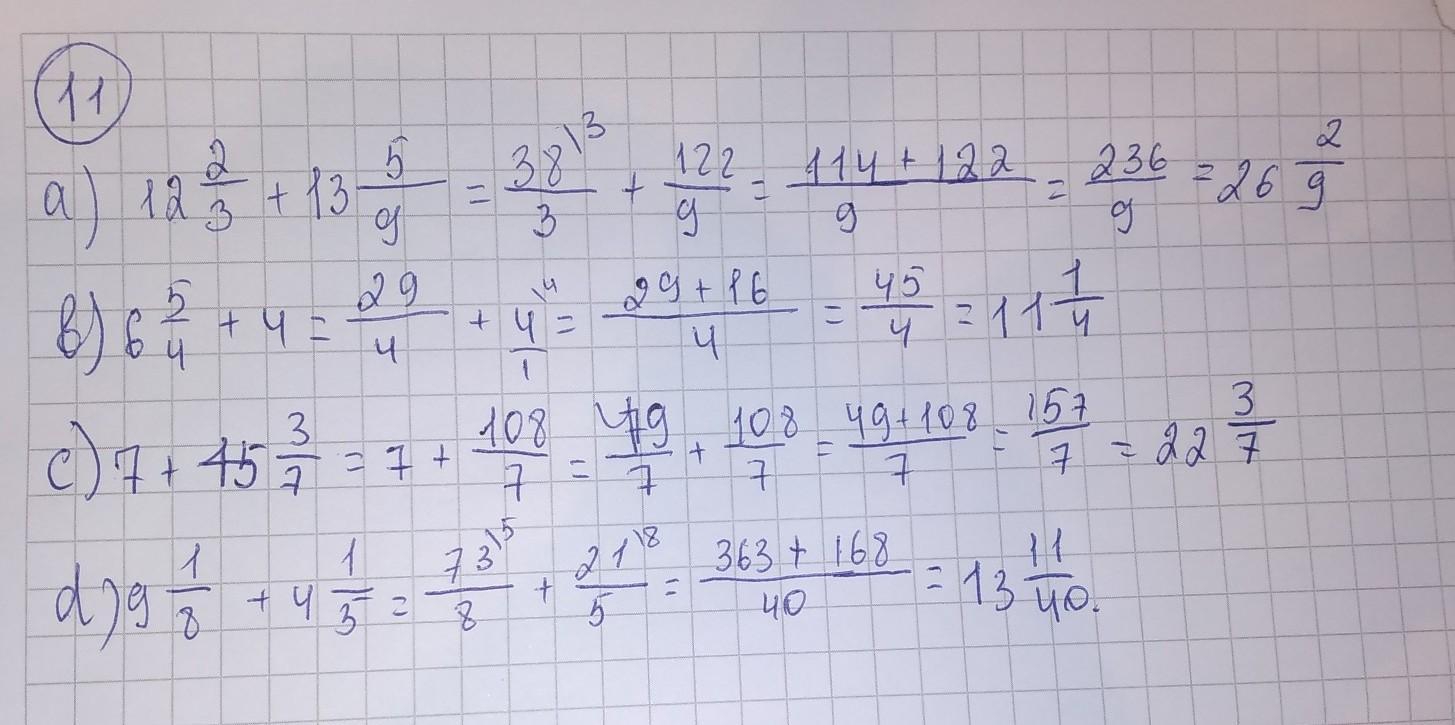 11
a) 12 2/3 + 13 5/9 = 38\3/3 + 122/9 = 114 + 122/9 = 236/9 = 26 2/9
b) 6 5/4 + 4 = 29/4 + 4\4/1 = 29 + 16/4 = 45/4 = 11 1/4
c) 7 + 15 3/7 = 7 + 108/7 = 49/7 + 108/7 = 49 + 108/7 = 157/7 = 22 3/7
d) 9 1/8 + 4 1/5 = 73\5/8 + 21\8/5 = 363 + 168/40 = 13 11/40.